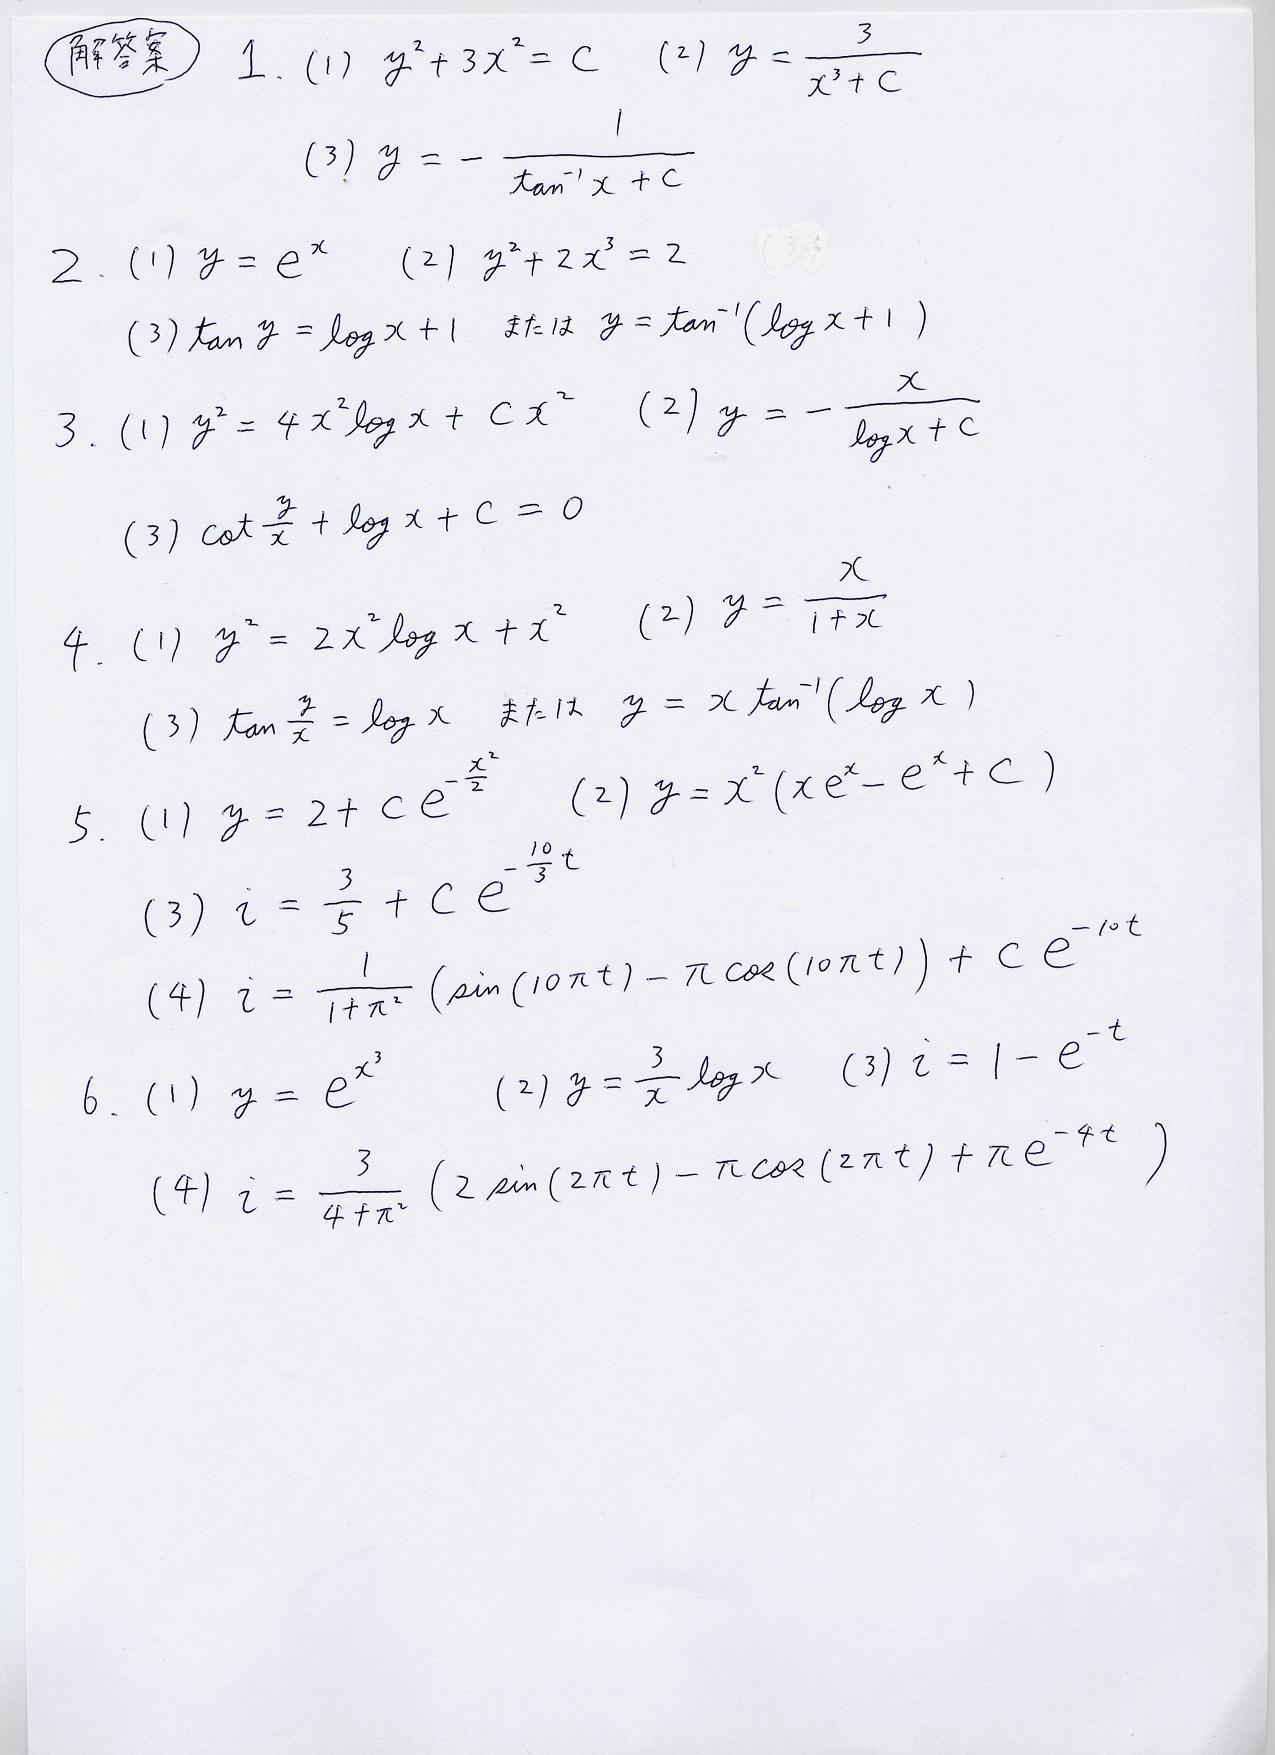 解答案 1. (1) y² + 3x² = C (2) y = 3/(x³ + C)
(3) y = - 1/(tan⁻¹x + C)
2. (1) y = eˣ (2) y² + 2x³ = 2
(3) tan y = log x + 1 または y = tan⁻¹(log x + 1)
3. (1) y² = 4x² log x + Cx² (2) y = - x/(log x + C)
(3) cot y/x + log x + C = 0
4. (1) y² = 2x² log x + x² (2) y = x/(1 + x)
(3) tan y/x = log x または y = x tan⁻¹(log x)
5. (1) y = 2 + C e^(-x²/2) (2) y = x²(xeˣ - eˣ + C)
(3) i = 3/5 + C e^(-10/3 t)
(4) i = 1/(1+π²) (sin(10πt) - π cos(10πt)) + C e^(-10t)
6. (1) y = e^(x³) (2) y = 3/x log x (3) i = 1 - e^(-t)
(4) i = 3/(4+π²) (2 sin(2πt) - π cos(2πt) + π e^(-4t))